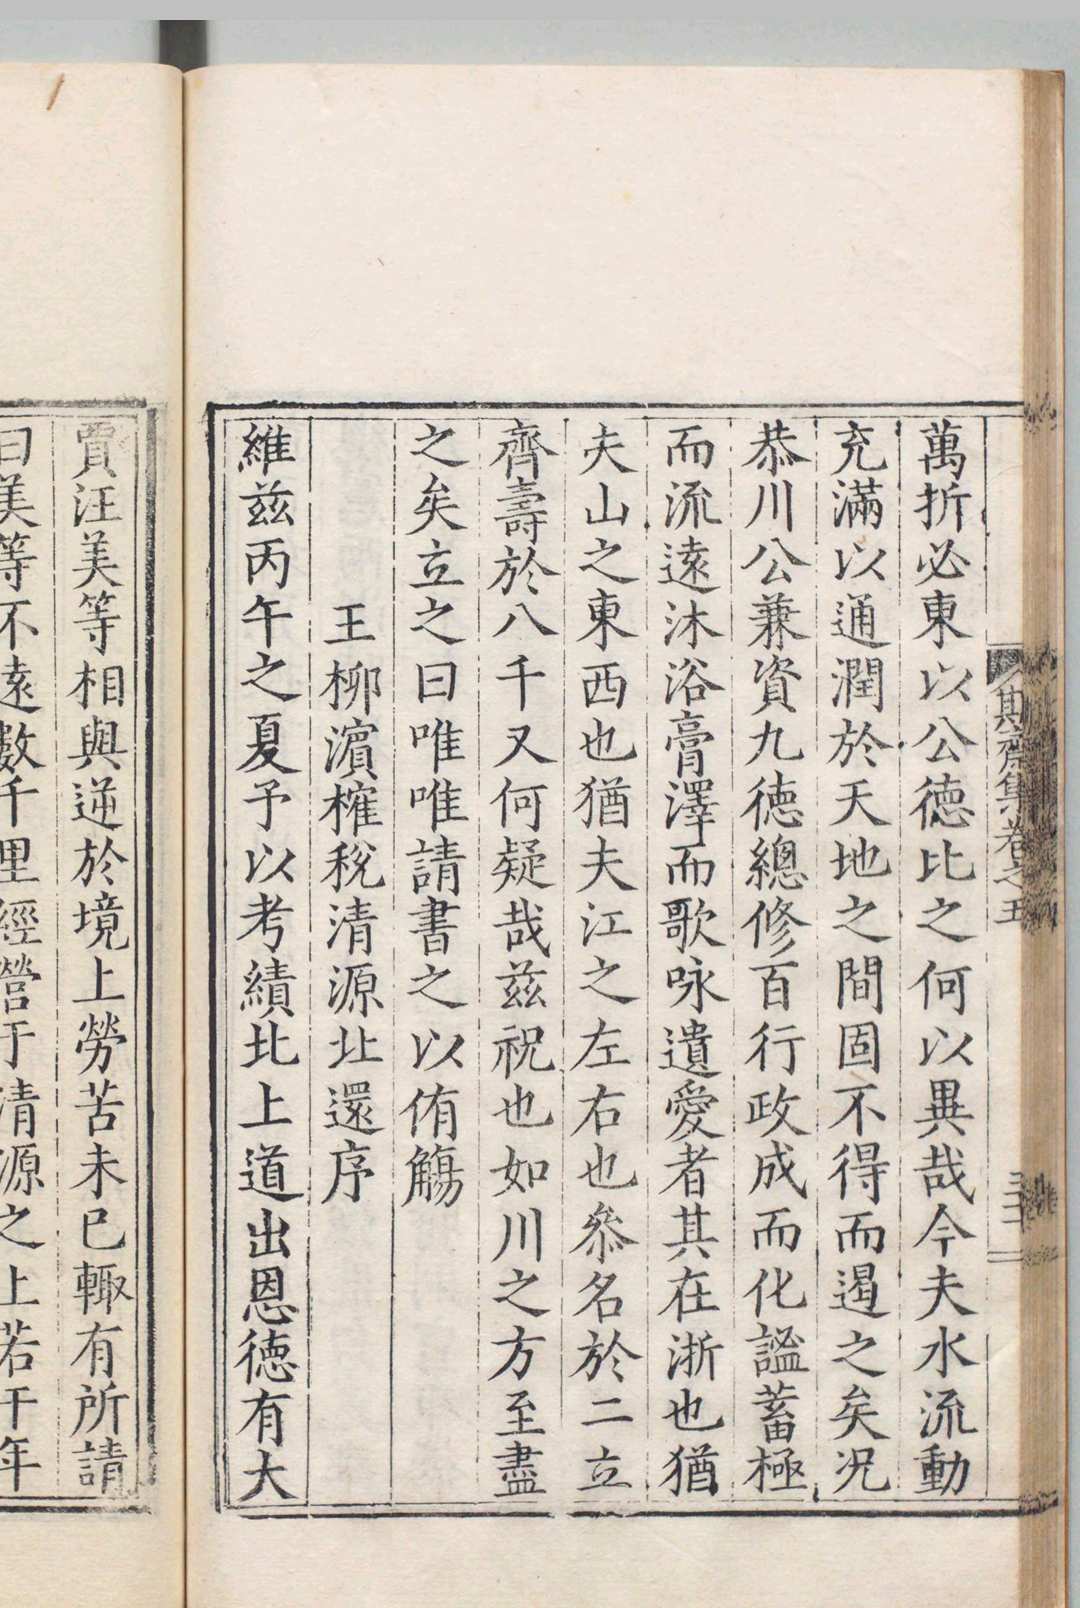 期齋集卷之五
萬折必東以公德比之何以異哉今夫水流動
充滿以通潤於天地之間固不得而遏之矣況
恭川公兼資九德總修百行政成而化謐蓄極
而流遠沐浴膏澤而歌咏遺愛者其在浙也猶
夫山之東西也猶夫江之左右也叅名於二立
齊壽於八千又何疑哉兹祝也如川之方至盡
之矣立之曰唯唯請書之以侑觴
王柳濵榷稅清源北還序
維兹丙午之夏予以考績北上道出恩德有大
賈汪美等相與逆於境上勞苦未已輙有所請
曰美等不遠數千里經營于清源之上若干年